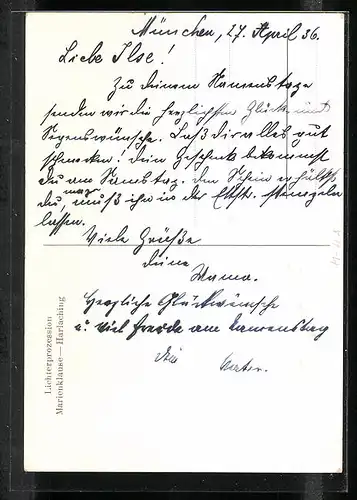 München, 27. April 36.
Liebe Ilse!
Zu deinem Namenstage
senden wir die herzlichsten Glück- und
Segenswünsche. Laß dir alles gut
schmecken! Dein Geschenk bekommst
du am Samstag. den Schein erhältst
du, mußt ihn in der
lassen.
Viele Grüße
deine
Mama.
Herzliche Glückwünsche
u. viel Freude am Namenstag
Dein Vater.
Lichterprozession
Marienklause—Harlaching